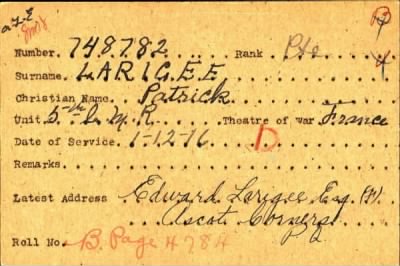 Number. 748782 Rank Pte
Surname. LARIGEE
Christian Name. Patrick
Unit. 5th C.M.R. Theatre of war. France
Date of Service. 1-12-16 D
Remarks.
Latest Address Edward Larigee Esq. (F).
Ascot Corners
P Q
Roll No. B. Page 4784